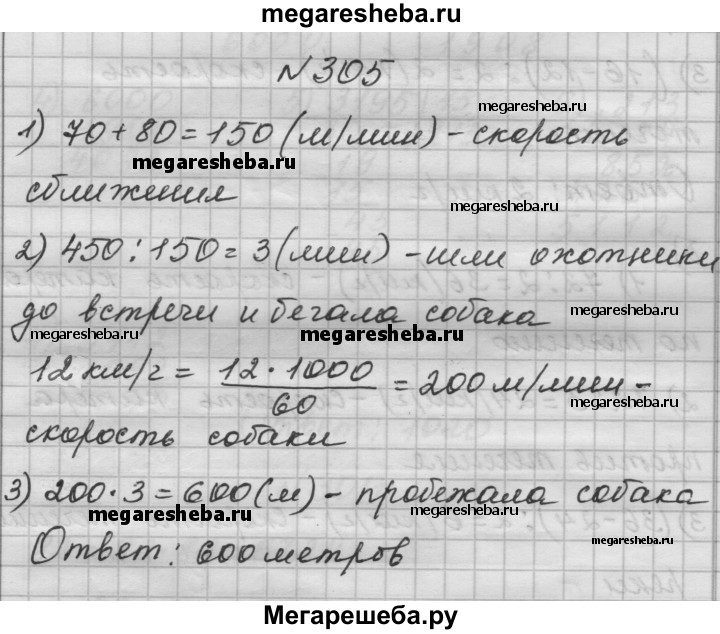 megaresheba.ru
№305
megaresheba.ru
1) 70+80=150 (м/мин) - скорость
megaresheba.ru
megaresheba.ru
сближения
megaresheba.ru
2) 450:150=3(мин) - шли охотники
до встречи и бегала собака
megaresheba.ru
megaresheba.ru
megaresheba.ru
12 км/г = 12·1000/60 = 200 м/мин -
megaresheba.ru
скорость собаки
3) 200·3=600(м) - пробежала собака
megaresheba.ru
megaresheba.ru
megaresheba.ru
Ответ: 600 метров
Мегарешеба.ру